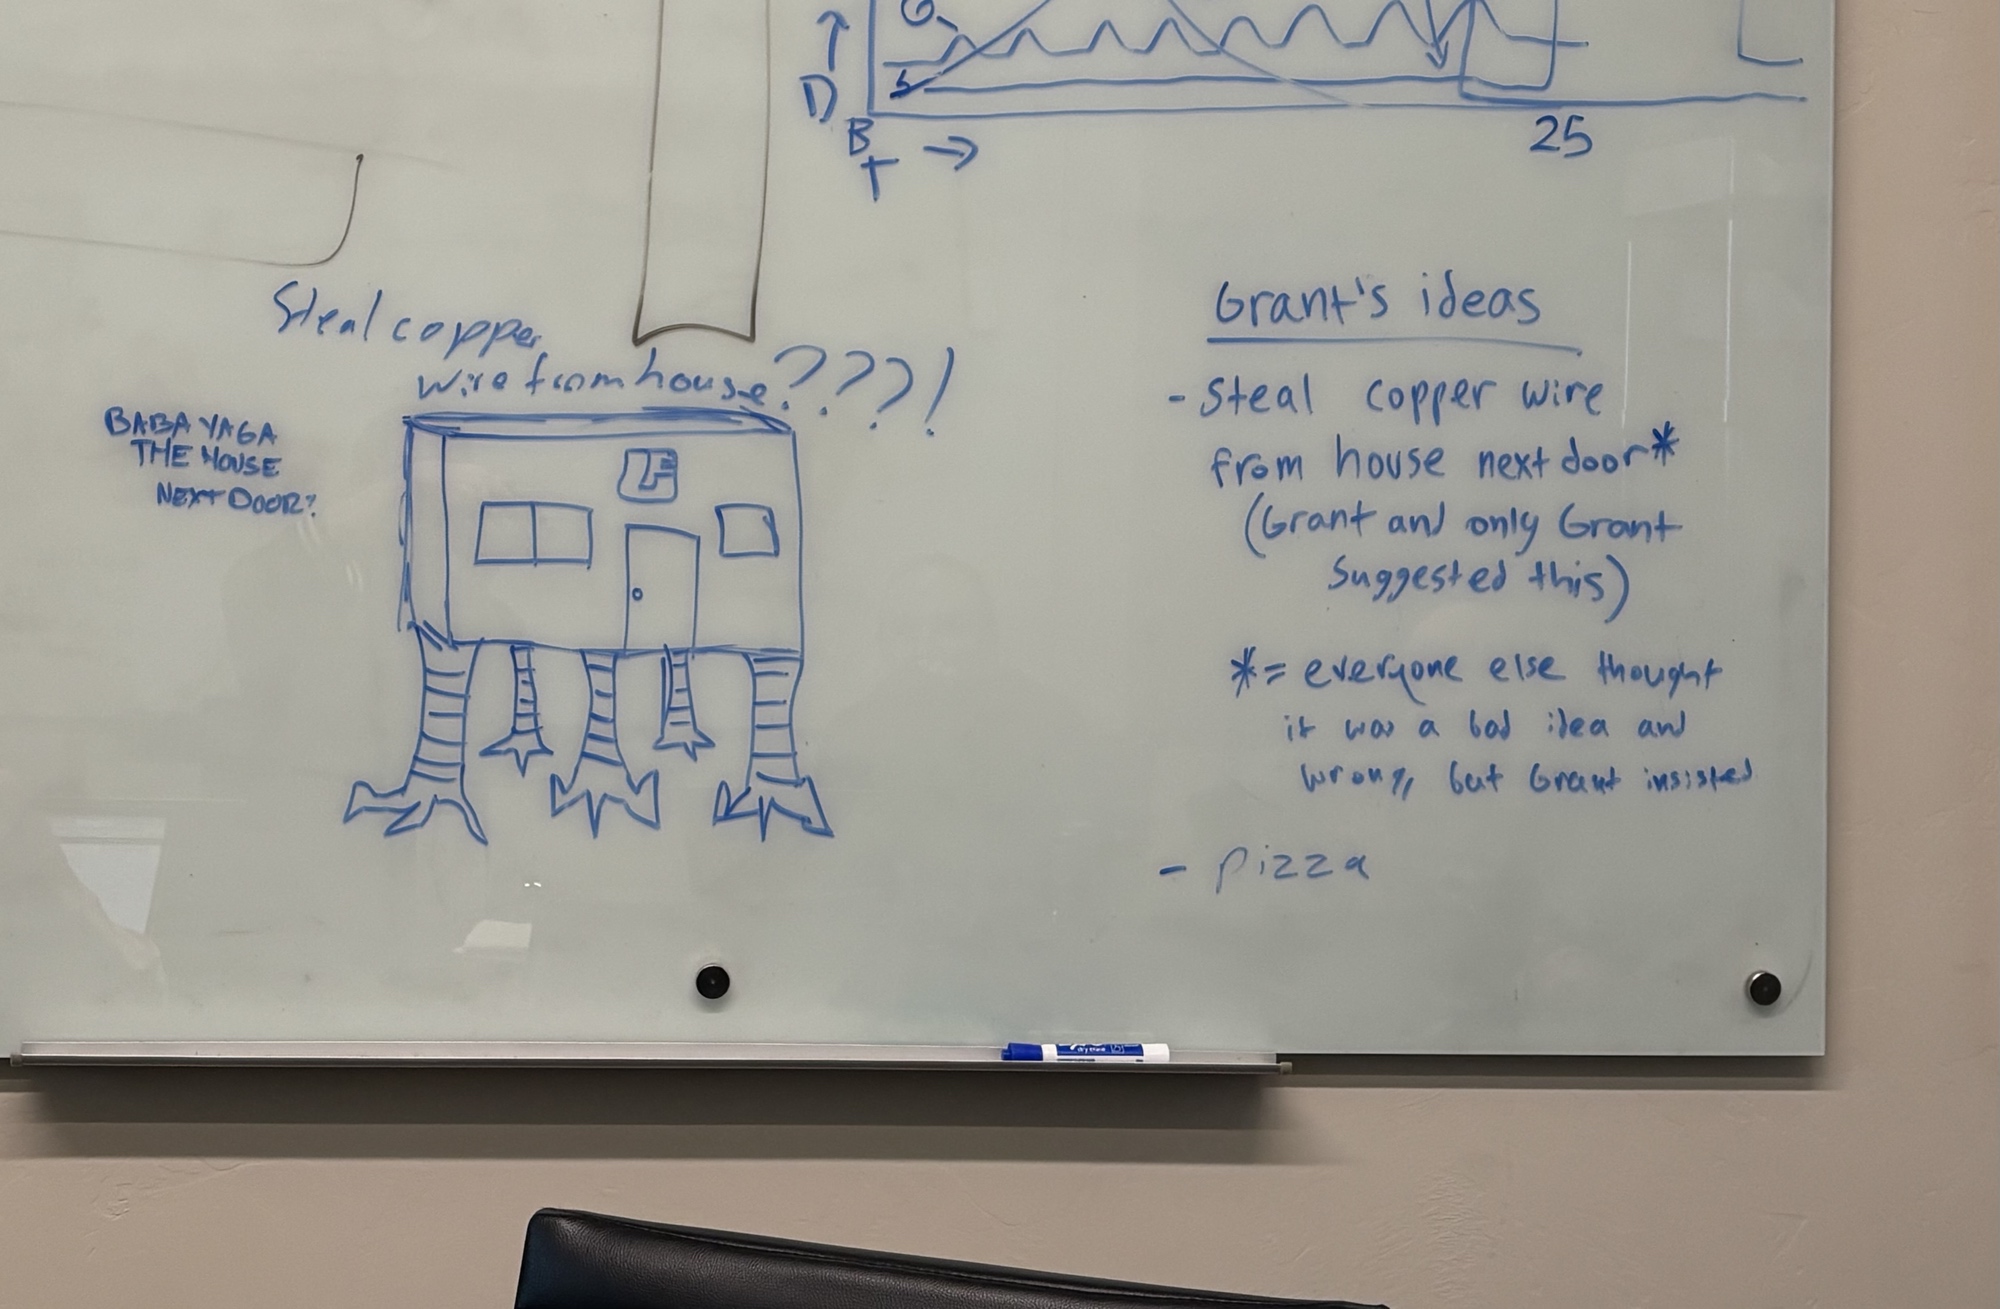 G
S
D
B
T
25
Steal copper
wire from house???!
BABA YAGA
THE HOUSE
NEXT DOOR?
LF
Grant's ideas
- Steal copper wire
from house next door*
(Grant and only Grant
suggested this)
*= everyone else thought
it was a bad idea and
wrong, but Grant insisted
- pizza
dry erase